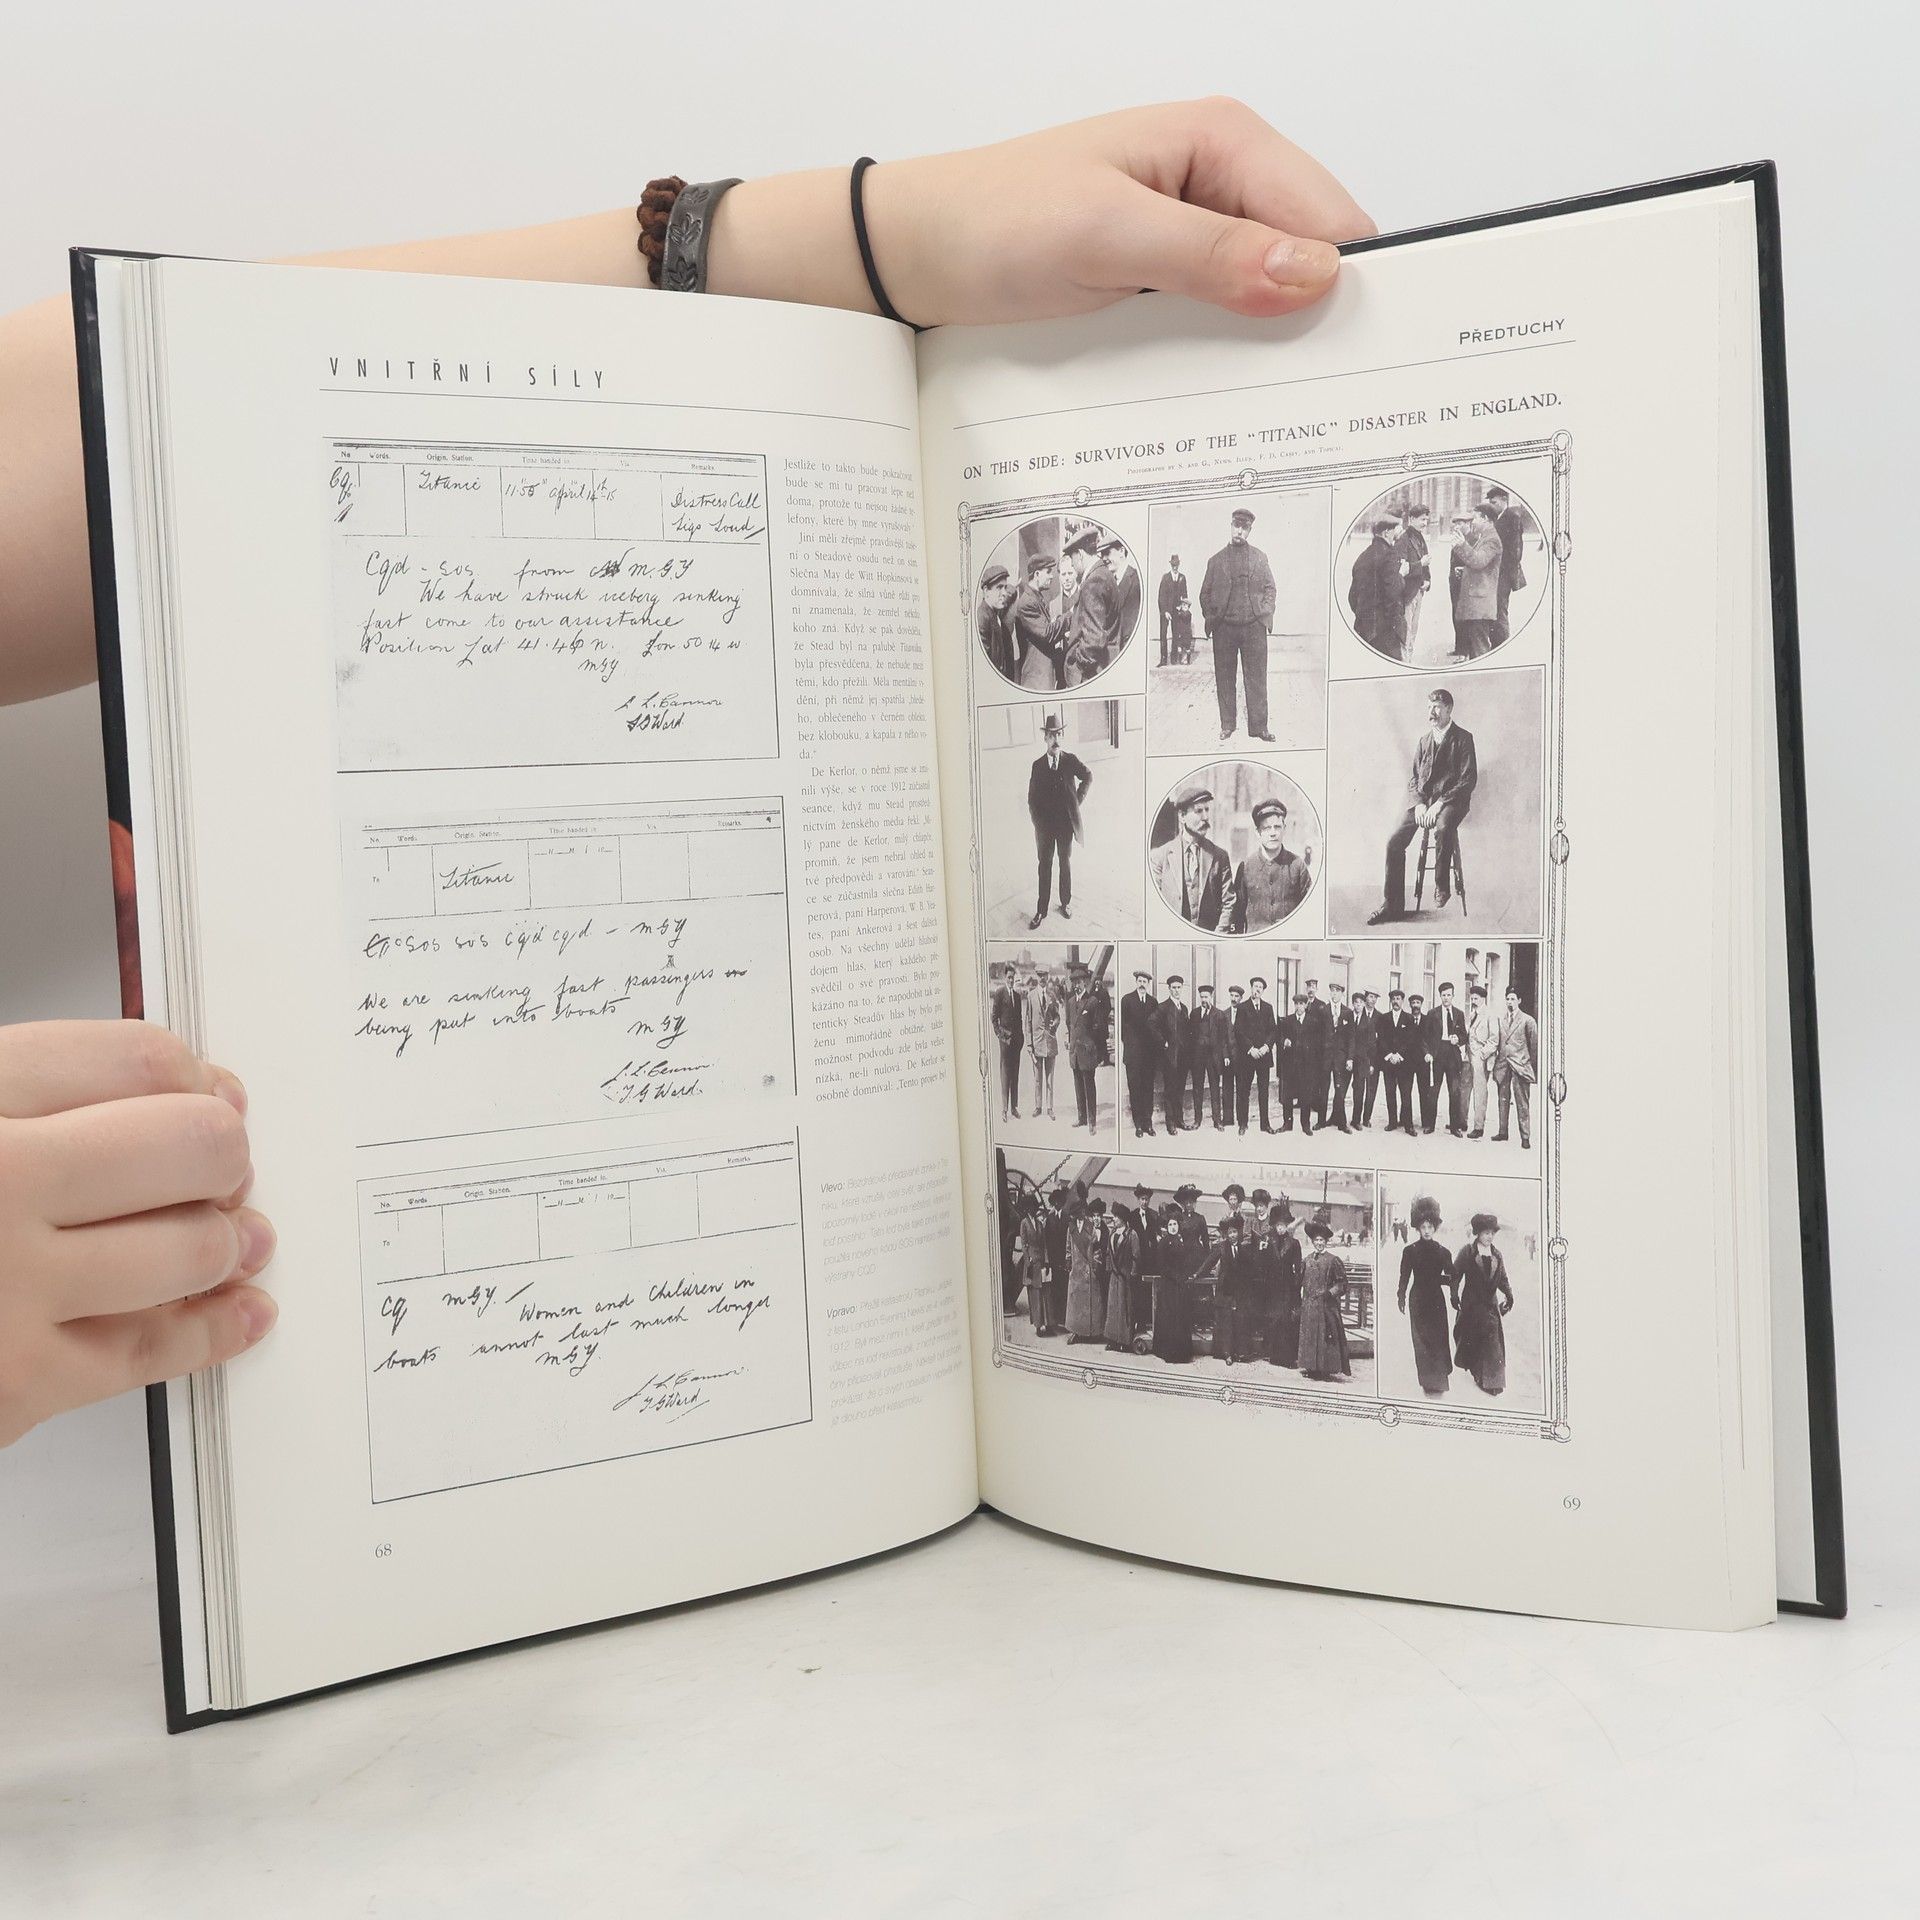 VNITŘNÍ SÍLY
No Words. Origin. Station. Time handed in. Via. Remarks.
Titanic 11.50 April 14th-15 Distress Call
Sigs Loud
Cqd - SOS from M.G.Y
We have struck iceberg sinking
fast come to our assistance
Position Lat 41.46 n. Lon. 50 14 w.
MGY
No. Words. Origin. Station. Time handed in. Via. Remarks.
To Titanic
SOS SOS cqd cqd - MGY
We are sinking fast passengers
being put into boats
MGY
No. Words Origin. Station. Time handed in. Via. Remarks.
To
CQ MGY. Women and Children in
boats cannot last much longer
MGY
Jestliže to takto bude pokračovat,
bude se mi tu pracovat lépe než
doma, protože tu nejsou žádné te-
lefony, které by mne vyrušovaly."
Jiní měli zřejmě pravdivější tuše-
ní o Steadově osudu než on sám.
Slečna May de Witt Hopkinsová se
domnívala, že silná vůně růží pro
ni znamenala, že zemřel někdo,
koho zná. Když se pak dověděla,
že Stead byl na palubě Titaniku,
byla přesvědčena, že nebude mezi
těmi, kdo přežili. Měla mentální vi-
dění, při němž jej spatřila „bledé-
ho, oblečeného v černém obleku,
bez klobouku, a kapala z něho vo-
da."
De Kerlor, o němž jsme se zmí-
nili výše, se v roce 1912 zúčastnil
seance, když mu Stead prostřed-
nictvím ženského média řekl: „Mi-
lý pane de Kerlor, milý chlapče,
promiň, že jsem nebral ohled na
tvé předpovědi a varování." Sean-
ce se zúčastnila slečna Edith Har-
perová, paní Harperová, W. B. Yea-
tes, paní Ankerová a šest dalších
osob. Na všechny udělal hluboký
dojem hlas, který každého pře-
svědčil o své pravosti. Bylo pou-
kázáno na to, že napodobit tak au-
tenticky Steadův hlas by bylo pro
ženu mimořádně obtížné, takže
možnost podvodu zde byla velice
nízká, ne-li nulová. De Kerlor se
osobně domníval: „Tento projev byl
Vlevo:
výstrahy CQD.
Vpravo:
68
PŘEDTUCHY
ON THIS SIDE: SURVIVORS OF THE "TITANIC" DISASTER IN ENGLAND.
PHOTOGRAPHS BY S. AND G., NEWS. ILLUS., F. D. CASEY, AND TOPICAL.
5
6
69